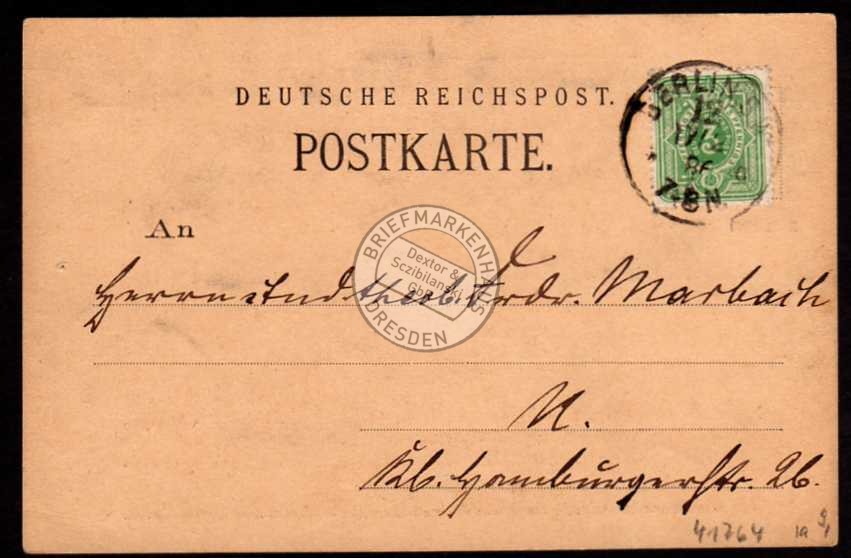 DEUTSCHE REICHSPOST.
POSTKARTE.
BERLIN
12
86
7-8N.
An
Herrn stud theol. Frdr. Marbach
N.
Kl. Hamburgerstr. 26.
41764
BRIEFMARKENHAUS
Dextor &
Sczibilanski
GbR
DRESDEN